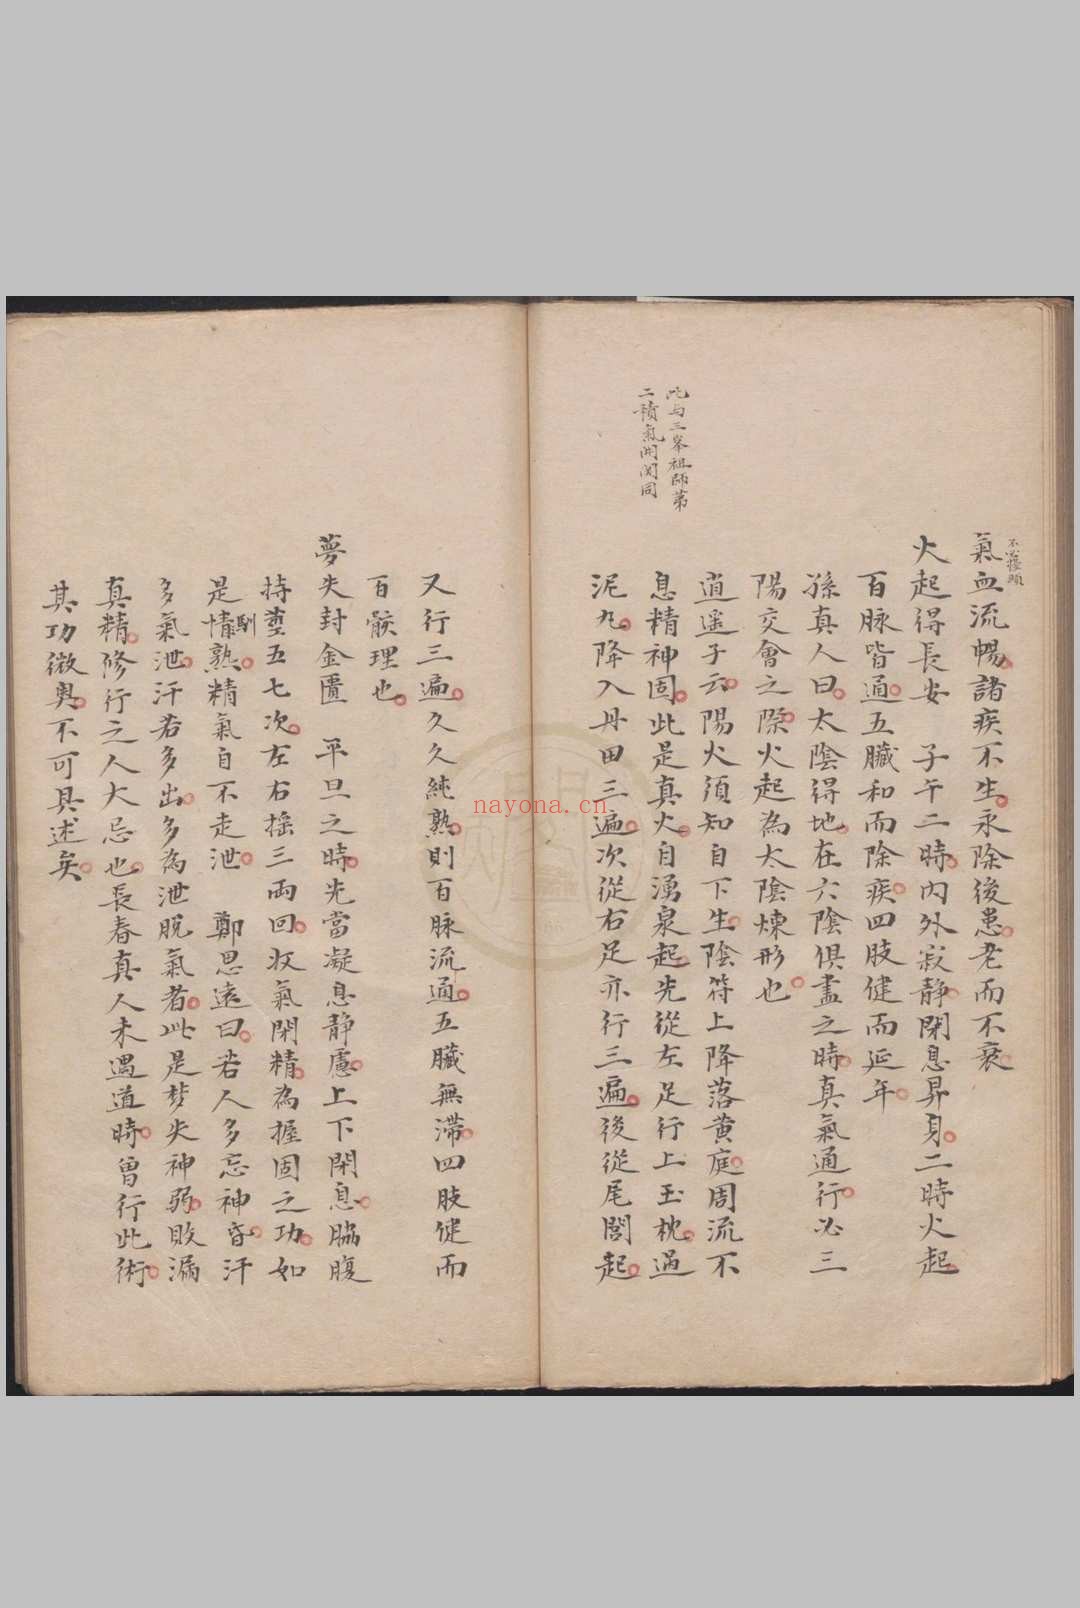 不必擡頭
氣血流暢諸疾不生永除後患老而不衰
火起得長安　子午二時內外寂靜閉息昇身二時火起
百脉皆通五臟和而除疾四肢健而延年
孫真人曰太陰得地在六陰俱盡之時真氣通行必三
陽交會之際火起為太陰煉形也
此与三峯祖師第
二積氣開関同
逍遥子云陽火須知自下生陰符上降落黄庭周流不
息精神固此是真火自湧泉起先從左足行上玉枕過
泥丸降入丹田三遍次從右足亦行三遍後從尾閭起
又行三遍久久純熟則百脉流通五臟無滯四肢健而
百骸理也
夢失封金匱　平旦之時先當凝息静慮上下閉息脇腹
持蓥五七次左右摇三両回收氣閉精為握固之功如
是情馴熟精氣自不走泄　鄭思遠曰若人多忘神昏汗
多氣泄汗若多出多為泄脫氣者此是梦失神弱敗漏
真精修行之人大忌也長春真人未遇道時曾行此術
其功微奥不可具述矣
nayona.cn